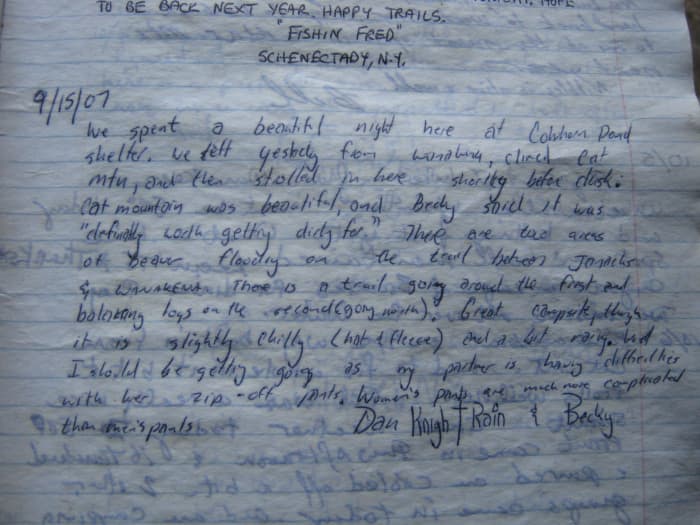 TO BE BACK NEXT YEAR. HAPPY TRAILS.
"FISHIN FRED"
SCHENECTADY, N.Y.
9/15/07
We spent a beautiful night here at Cowhorn Pond
shelter. We left yesterday from Wanakena, climed Cat
mtn, and then strolled in here shortly before dusk.
Cat mountain was beautiful, and Becky said it was
"definatly worth getting dirty for." There are two areas
of beaver flooding on the trail between Janacks
& Wanakena. There is a trail going around the first and
balancing logs on the second (going north). Great campsite, though
it is slightly chilly (hat & fleece) and a bit rainy.
I should be getting going as my partner is having difficulties
with her zip-off pants. Women's pants are much more complicated
than men's pants
Dan Knight Rain & Becky